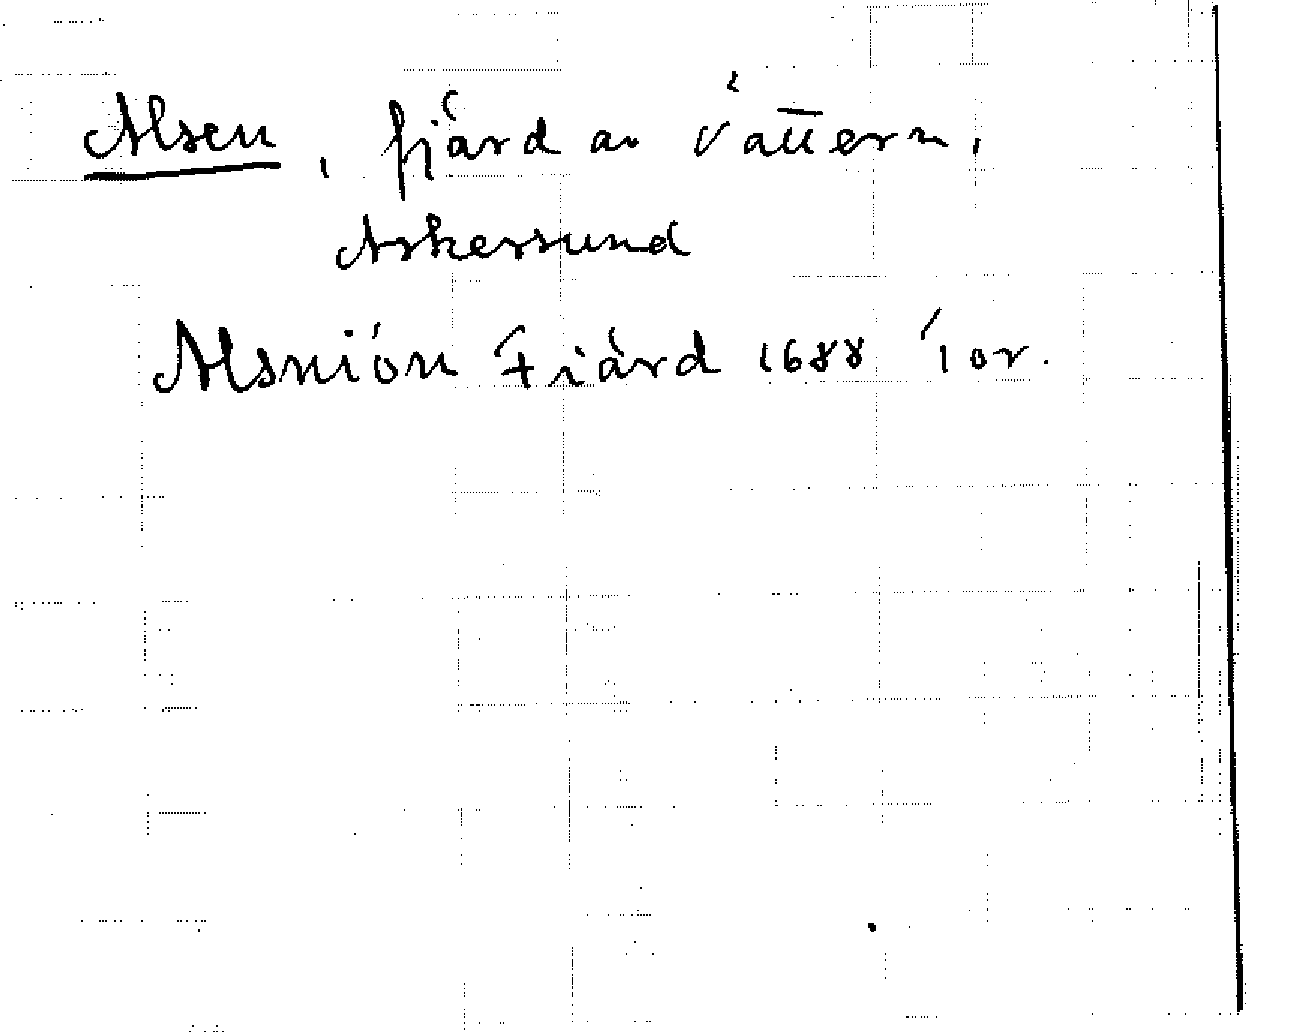 Alsen, fjärd av Vättern,
Askersund
Alsniön Fiärd 1688 Jor.